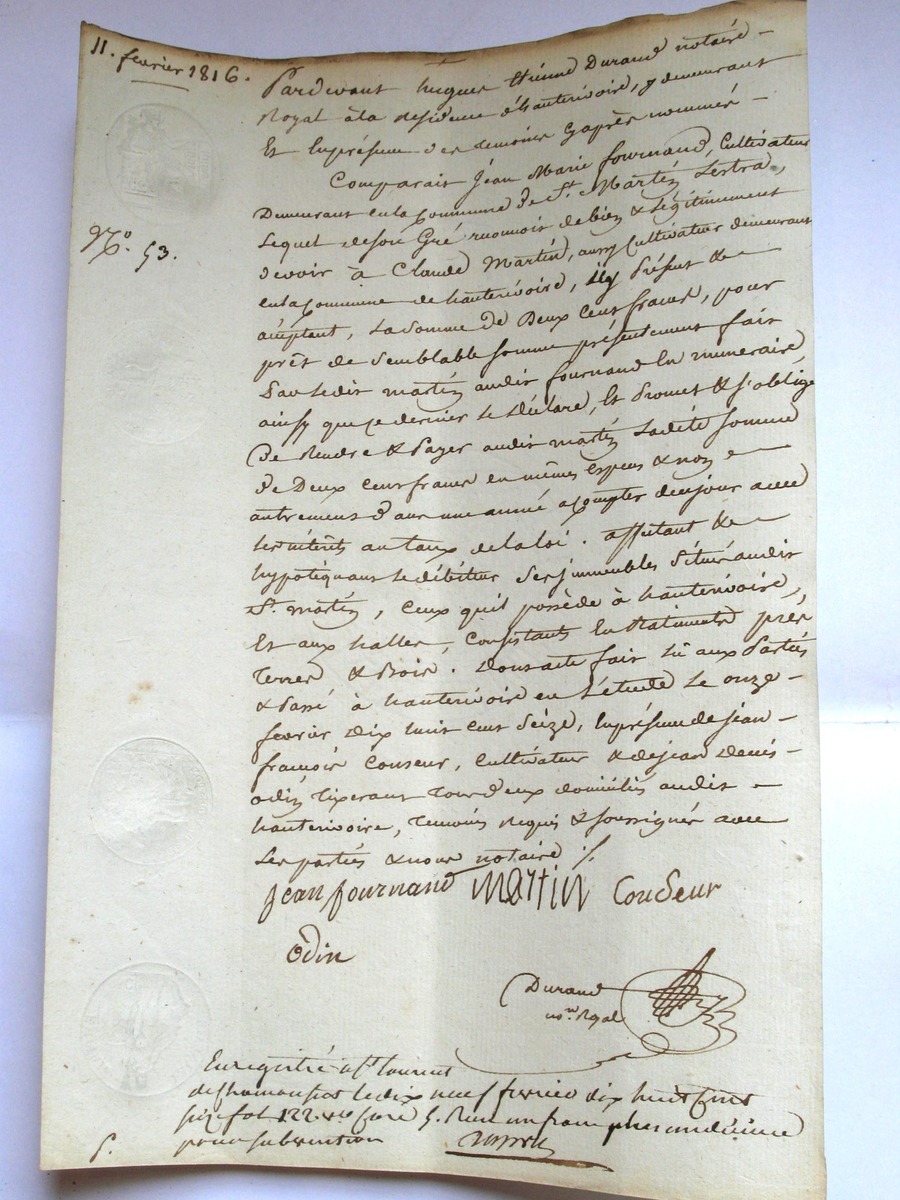 11. fevrier 1816.
Pardevant hugues Etienne Durand notaire
Royal à la residence d'hauterivoire, y demeurant
Et En présence des temoins cy après nommés
Comparait Jéan Marie fournand, Cultivateur
Demeurant en la Commune de St. Martin Lestra,
Lequel de son Gré reconnoit debien & Légitimement
N.o 53.
devoir à Claude Martin, aussy Cultivateur demeurant
en la Commune de hauterivoire, icy Présent &
acceptant, La Somme de Deux Cent francs, pour
prêt de Semblable Somme présentement fait
Par ledit martin audit fournand En numeraire,
ainsy que ce dernier Le Déclare, Et Promet & s'oblige
De Rendre & Payer audit martin Ladite Somme
de Deux Cent francs en mêmes Espèces & non
autrement d'aur une année a Compter de ce jour avec
Les intérêts au taux de la loi. affectant &
hypotéquant Le débiteur Ses jmmeubles Situés audit
St. martin, Ceux qu'il possède à hauterivoire,
Et aux halles, Consistants En Batiments prés
Terres & Bois. Dont acte fait Lû aux Parties
& Passé à hauterivoire en L'étude Le onze
fevrier Dix huit Cent Seize, En présence de Jéan
françois Couseur, Cultivateur & de jean Denis
odin Tixerant Tous deux domiciliés audit
hauterivoire, Temoins Requis & Soussignés avec
Les parties & nous notaire ./.
Jean fournand martin Couseur
Odin
Durand
no.re Royal
Enregistré a St. laurent
de Chamousset le dix neuf fevrier dix huit Cent
seize fol 122. v.o Case 5. Reçu un franc plus un dixieme
pour subvention